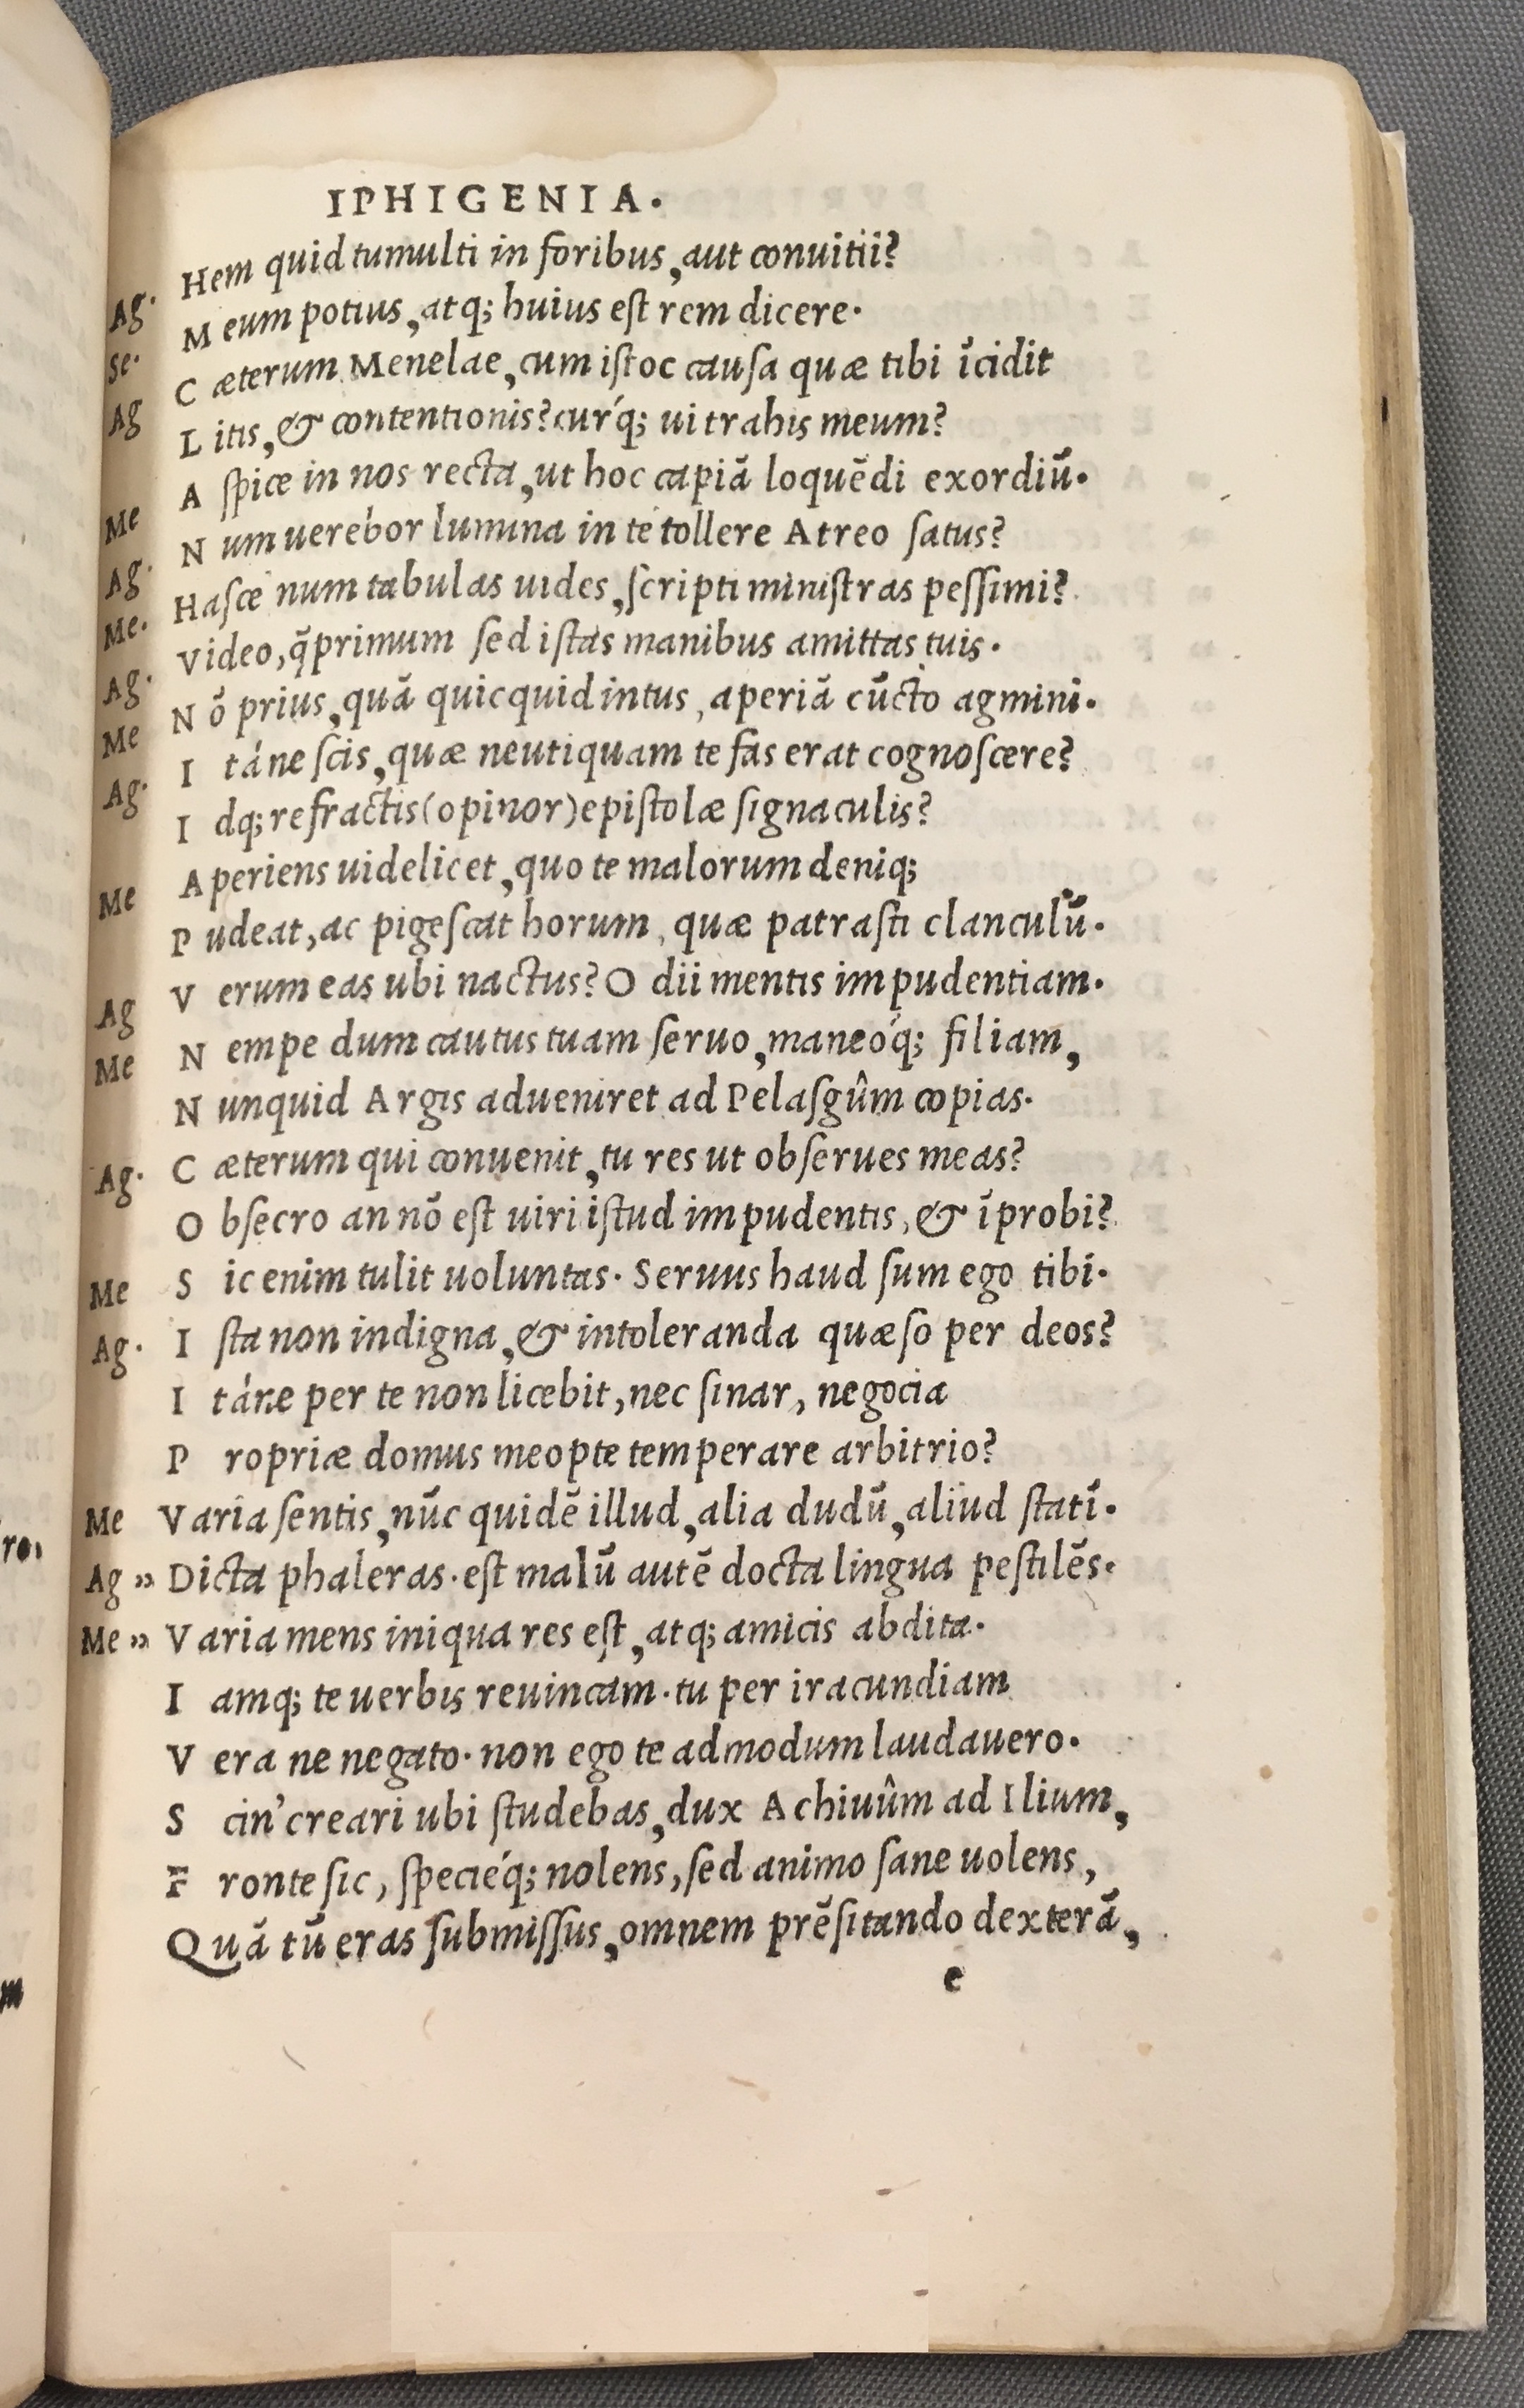 IPHIGENIA.
Hem quid tumulti in foribus, aut conuitii?
Ag. Meum potius, atq; huius est rem dicere.
Se. Cæterum Menelae, cum istoc causa quæ tibi ĩcidit
Ag Litis, & contentionis? cur'q; ui trahis meum?
Aspice in nos recta, ut hoc capiā loquēdi exordiū.
Me Num uerebor lumina in te tollere Atreo satus?
Ag. Hasce num tabulas uides, scripti ministras pessimi?
Me. Video, q̄primum sed istas manibus amittas tuis.
Ag. Nō prius, quā quicquid intus, aperiā cūcto agmini.
Me Itáne scis, quæ neutiquam te fas erat cognoscere?
Ag. Idq; refractis (opinor) epistolæ signaculis?
Aperiens uidelicet, quo te malorum deniq;
Me Pudeat, ac pigescat horum, quæ patrasti clanculū.
Verum eas ubi nactus? O dii mentis impudentiam.
Ag Nempe dum cautus tuam seruo, maneóq; filiam,
Me Nunquid Argis adueniret ad Pelasgûm copias.
Ag. Cæterum qui conuenit, tu res ut obserues meas?
Obsecro an nō est uiri istud impudentis, & ĩprobi?
Me Sic enim tulit uoluntas. Seruus haud sum ego tibi.
Ag. Ista non indigna, & intoleranda quæso per deos?
Itáne per te non licebit, nec sinar, negocia
Propriæ domus meopte temperare arbitrio?
Me Varia sentis, nūc quidē illud, alia dudū, aliud statĩ.
Ag » Dicta phaleras. est malū autē docta lingua pestilēs.
Me » Varia mens iniqua res est, atq; amicis abdita.
Iamq; te uerbis reuincam. tu per iracundiam
Vera ne negato. non ego te admodum laudauero.
Scin' creari ubi studebas, dux Achiuûm ad Ilium,
Fronte sic, specieq́; nolens, sed animo sane uolens,
Quā tū eras submissus, omnem prēsitando dexterā,
e
ro.
m